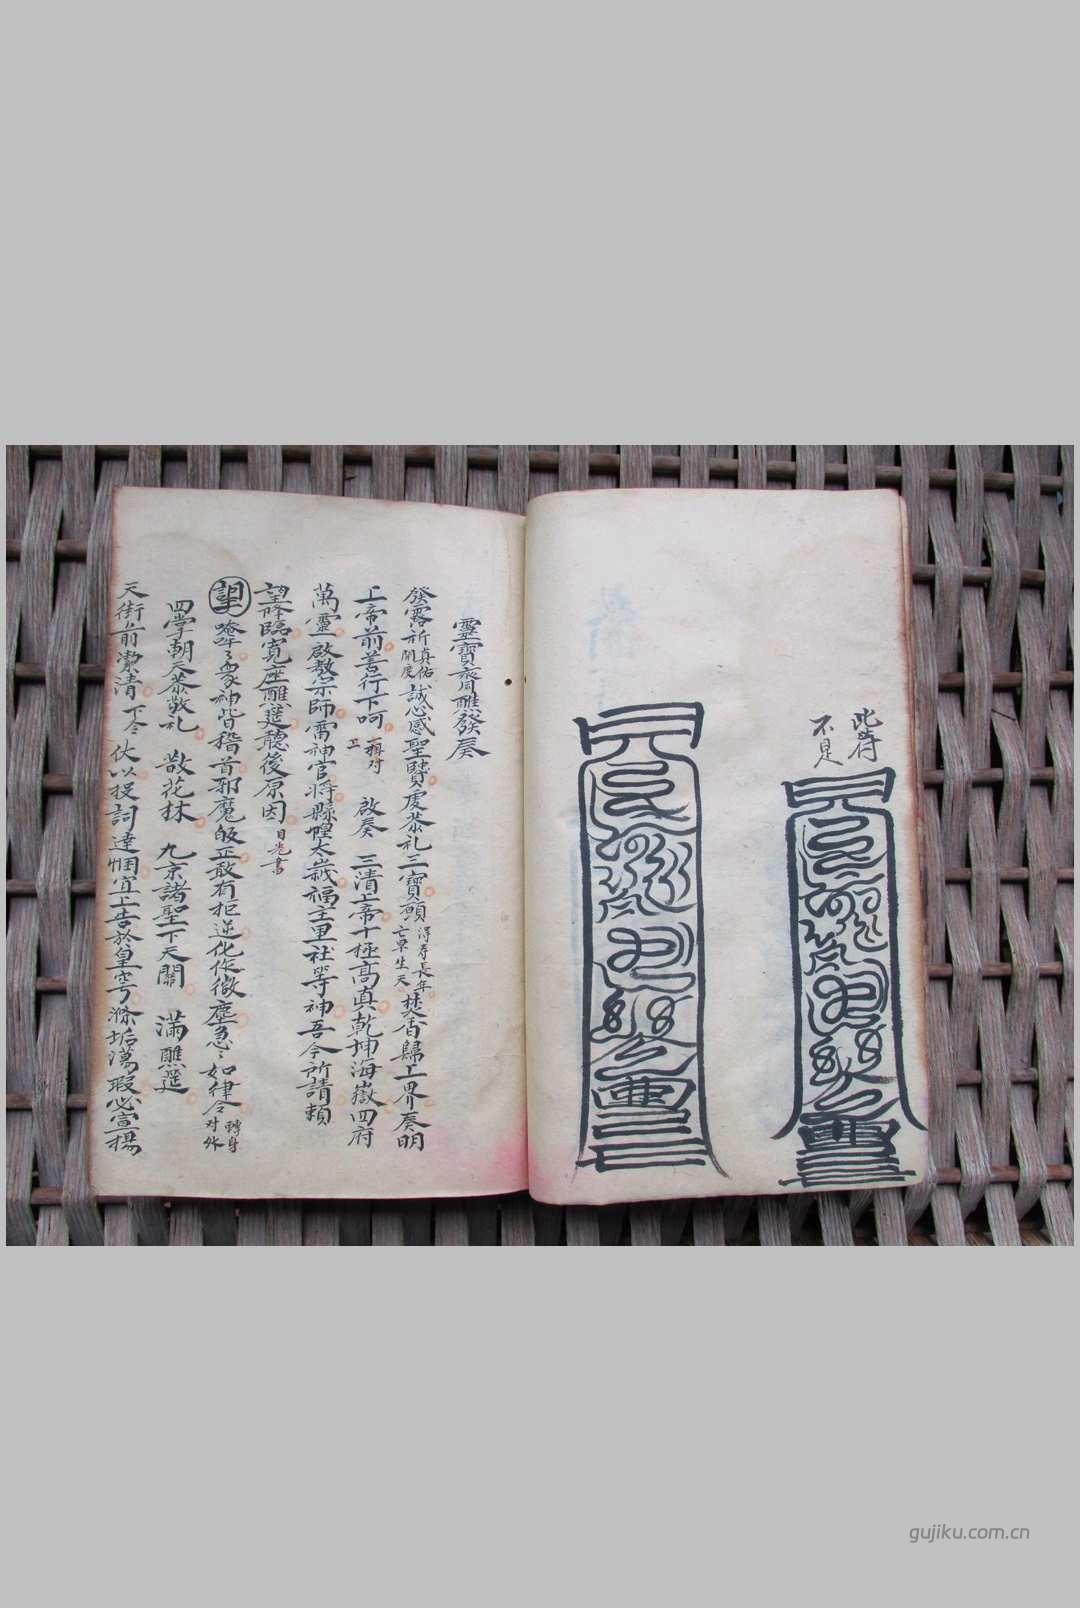 此符
不是
靈寶齋醮發奏
發露祈真佑開度誠心感聖賢虔恭礼三寶願得壽長年亡早生天焚香歸上界奏明
上帝前善行下呵 啟奏 三清上帝十極高真乾坤海嶽四府
萬靈啟教宗師雷神官將縣惶太歲福主里社等神吾今所請頼
望降臨寬座醮筵聽後原因
唵吽々衆神皆稽首邪魔皈正敢有拒逆化作微塵急々如律令轉身对外
四學朝天恭敬礼 散花林 九京諸聖下天關 滿醮筵
天街前潔清下令 伏以投詞達悃宜上告於皇穹滌垢蕩瑕必宣揚
gujiku.com.cn